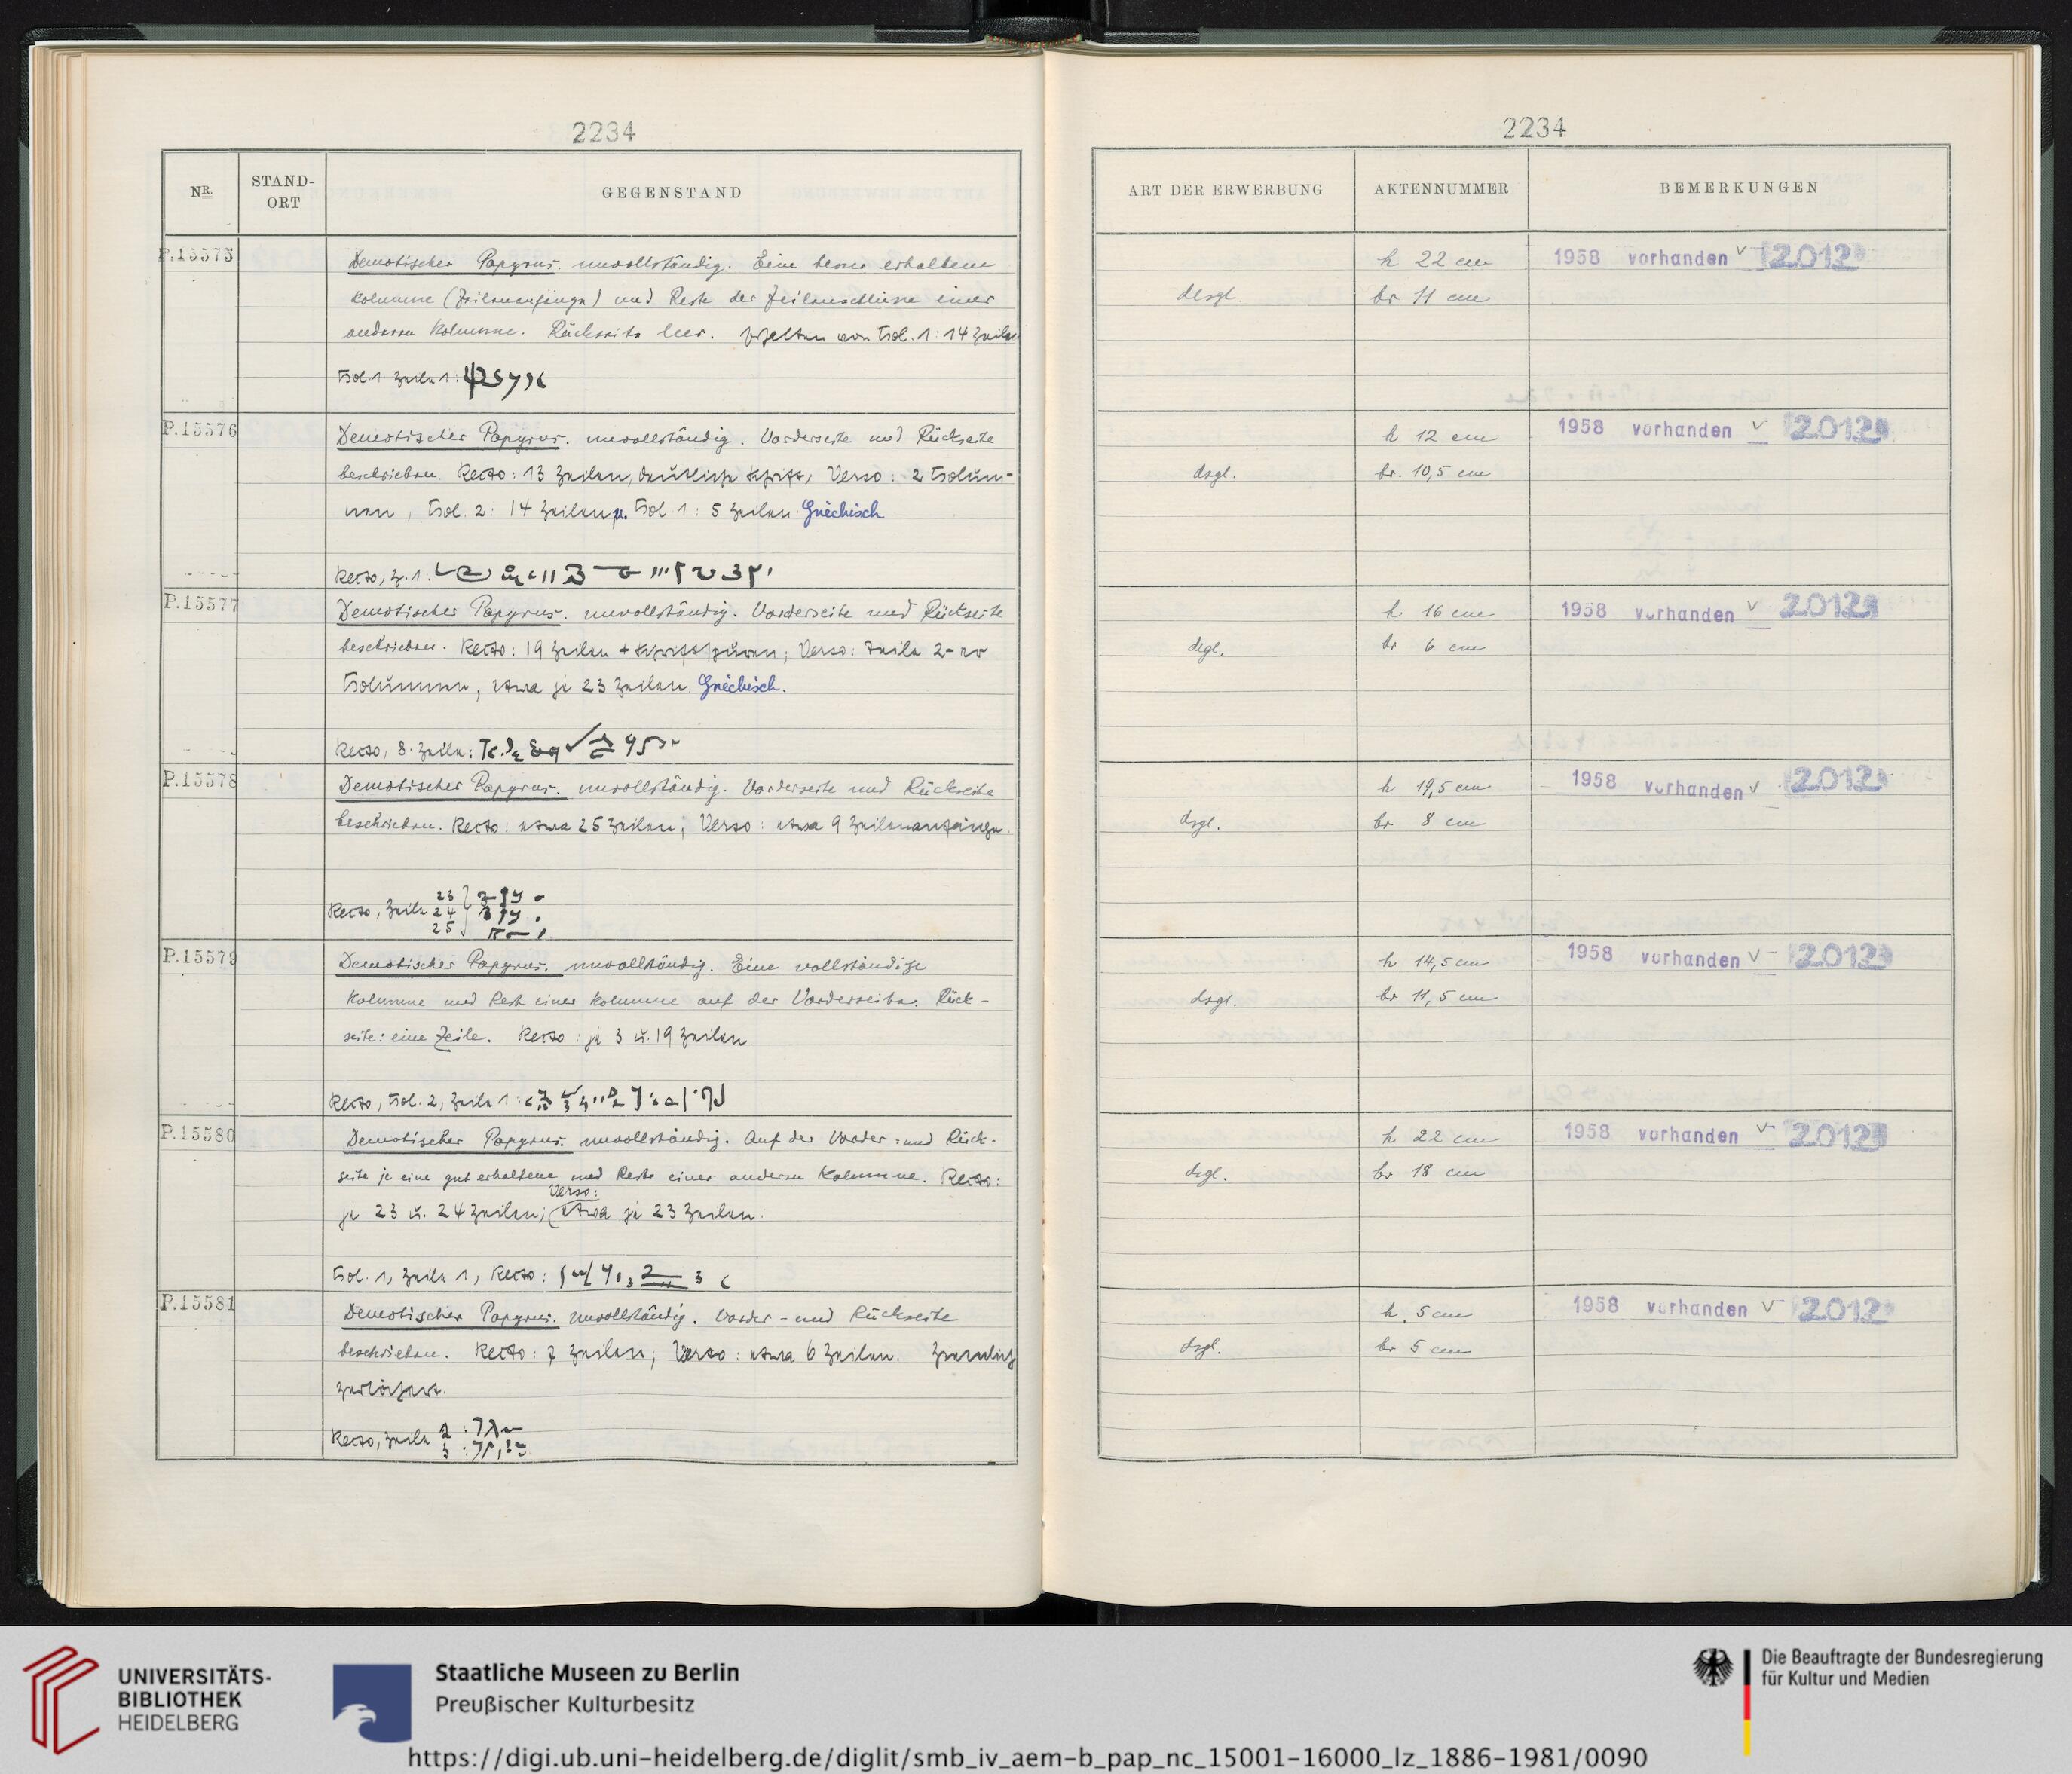 2234
NR.
STAND-
ORT
GEGENSTAND
P.15575
Demotischer Papyrus. unvollständig. Eine besser erhaltene
Kolumne (Zeilenanfänge) und Reste der Zeilenschlüsse einer
anderen Kolumne. Rückseite leer. Erhalten von Kol. 1: 14 Zeilen
Kol 1 Zeile 1:
P.15576
Demotischer Papyrus. unvollständig. Vorderseite und Rückseite
beschrieben. Recto: 13 Zeilen, deutliche Schrift, Verso: 2 Kolum-
nen, Kol. 2: 14 Zeilen u. Kol 1: 5 Zeilen Griechisch
Recto, Z. 1:
P.15577
Demotischer Papyrus. unvollständig. Vorderseite und Rückseite
beschrieben. Recto: 19 Zeilen + Schriftspuren; Verso: Teile 2-er
Kolumnen, etwa je 23 Zeilen. Griechisch.
Recto, 8. Zeile:
P.15578
Demotischer Papyrus. unvollständig. Vorderseite und Rückseite
beschrieben. Recto: etwa 25 Zeilen; Verso: etwa 9 Zeilenanfänge.
Recto, Zeile 23
24
25
P.15579
Demotischer Papyrus. unvollständig. Eine vollständige
Kolumne und Rest einer Kolumne auf der Vorderseite. Rück-
seite: eine Zeile. Recto: je 3 u. 19 Zeilen.
Recto, Kol. 2, Zeile 1:
P.15580
Demotischer Papyrus. unvollständig. Auf der Vorder- und Rück-
seite je eine gut erhaltene und Reste einer anderen Kolumne. Recto:
je 23 u. 24 Zeilen; Verso: etwa je 23 Zeilen.
Kol. 1, Zeile 1, Recto:
P.15581
Demotischer Papyrus. unvollständig. Vorder- und Rückseite
beschrieben. Recto: 7 Zeilen; Verso: etwa 6 Zeilen. Ziemlich
zerlöchert.
Recto, Zeile 2:
3:
2234
ART DER ERWERBUNG
AKTENNUMMER
BEMERKUNGEN
h 22 cm
1958 vorhanden v 2012
desgl.
br 11 cm
h 12 cm
1958 vorhanden v 2012
dsgl.
br. 10,5 cm
h 16 cm
1958 vorhanden v 2012
dsgl.
br 6 cm
h 19,5 cm
1958 vorhanden v 2012
dsgl.
br 8 cm
h 14,5 cm
1958 vorhanden v 2012
dsgl.
br 11,5 cm
h 22 cm
1958 vorhanden v 2012
dsgl.
br 18 cm
h. 5 cm
1958 vorhanden v 2012
dsgl.
br 5 cm
UNIVERSITÄTS-
BIBLIOTHEK
HEIDELBERG
Staatliche Museen zu Berlin
Preußischer Kulturbesitz
Die Beauftragte der Bundesregierung
für Kultur und Medien
https://digi.ub.uni-heidelberg.de/diglit/smb_iv_aem-b_pap_nc_15001-16000_lz_1886-1981/0090